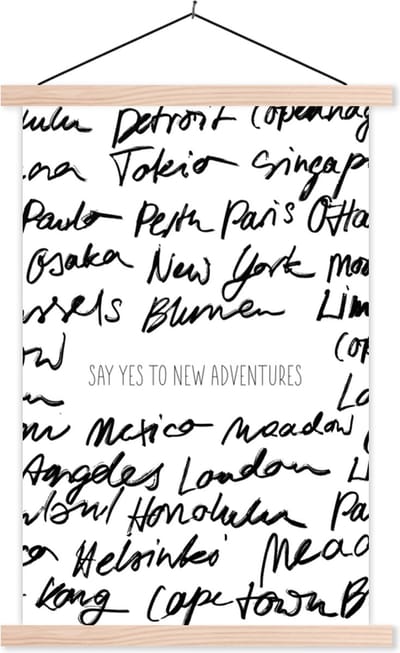 ulu Detroit Copenhag
ona Tokio Singap
Paulo Perth Paris Otta
Osaka New York Moo
ssels Blumen Lim
ow (op
SAY YES TO NEW ADVENTURES
Lo
Mexico Meadow
Angeles London L
Honolulu Pa
Helsinki Mead
Kong Cape Town B